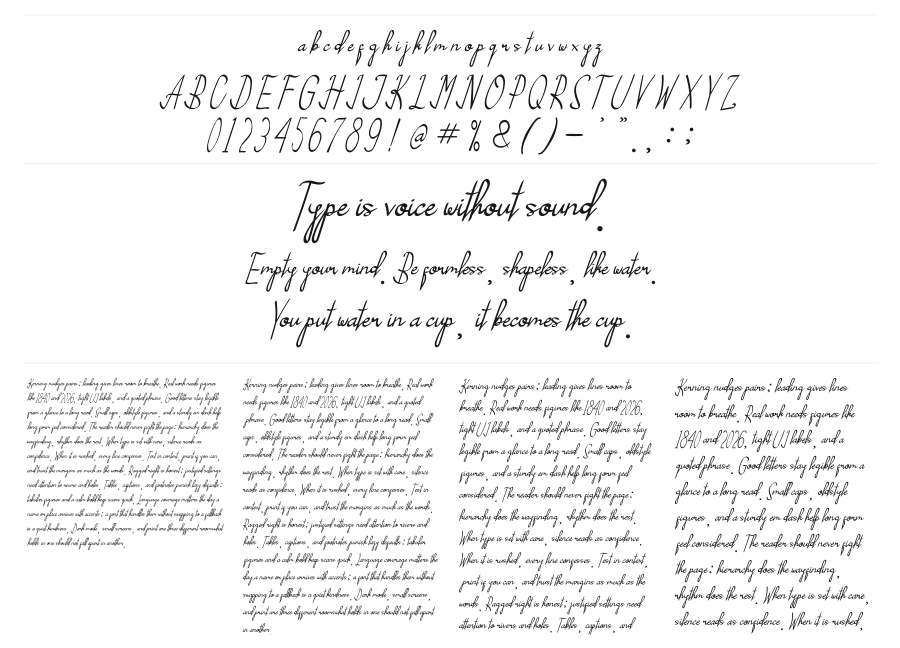 abcdefghijklmnopqrstuvwxyz
ABCDEFGHIJKLMNOPQRSTUVWXYZ
0123456789!@#%&()–'".,:;
Type is voice without sound.
Empty your mind. Be formless, shapeless, like water.
You put water in a cup, it becomes the cup.
Kerning nudges pairs; leading gives lines room to breathe. Real work needs figures
like 1840 and 2026, tight UI labels, and a quoted phrase. Good letters stay legible
from a glance to a long read. Small caps, oldstyle figures, and a sturdy em dash help
long form feel considered. The reader should never fight the page: hierarchy does the
wayfinding, rhythm does the rest. When type is set with care, silence reads as
confidence. When it is rushed, every line confesses. Test in context, print if you can,
and trust the margins as much as the words. Ragged right is honest; justified settings
need attention to rivers and holes. Tables, captions, and footnotes punish lazy digits:
tabular figures and a calm bold keep score quick. Language coverage matters the day a
name or place arrives with accents; a font that handles them without swapping to a fallback
is a quiet kindness. Dark mode, small screens, and print are three different rooms: what
holds in one should not fall apart in another.
Kerning nudges pairs; leading gives lines room to breathe. Real work
needs figures like 1840 and 2026, tight UI labels, and a quoted
phrase. Good letters stay legible from a glance to a long read. Small
caps, oldstyle figures, and a sturdy em dash help long form feel
considered. The reader should never fight the page: hierarchy does the
wayfinding, rhythm does the rest. When type is set with care, silence
reads as confidence. When it is rushed, every line confesses. Test in
context, print if you can, and trust the margins as much as the words.
Ragged right is honest; justified settings need attention to rivers and
holes. Tables, captions, and footnotes punish lazy digits: tabular
figures and a calm bold keep score quick. Language coverage matters the
day a name or place arrives with accents; a font that handles them without
swapping to a fallback is a quiet kindness. Dark mode, small screens,
and print are three different rooms: what holds in one should not fall apart
in another.
Kerning nudges pairs; leading gives lines room to
breathe. Real work needs figures like 1840 and 2026,
tight UI labels, and a quoted phrase. Good letters stay
legible from a glance to a long read. Small caps, oldstyle
figures, and a sturdy em dash help long form feel
considered. The reader should never fight the page:
hierarchy does the wayfinding, rhythm does the rest.
When type is set with care, silence reads as confidence.
When it is rushed, every line confesses. Test in context,
print if you can, and trust the margins as much as the
words. Ragged right is honest; justified settings need
attention to rivers and holes. Tables, captions, and
Kerning nudges pairs; leading gives lines
room to breathe. Real work needs figures like
1840 and 2026, tight UI labels, and a
quoted phrase. Good letters stay legible from a
glance to a long read. Small caps, oldstyle
figures, and a sturdy em dash help long form
feel considered. The reader should never fight
the page: hierarchy does the wayfinding,
rhythm does the rest. When type is set with care,
silence reads as confidence. When it is rushed,